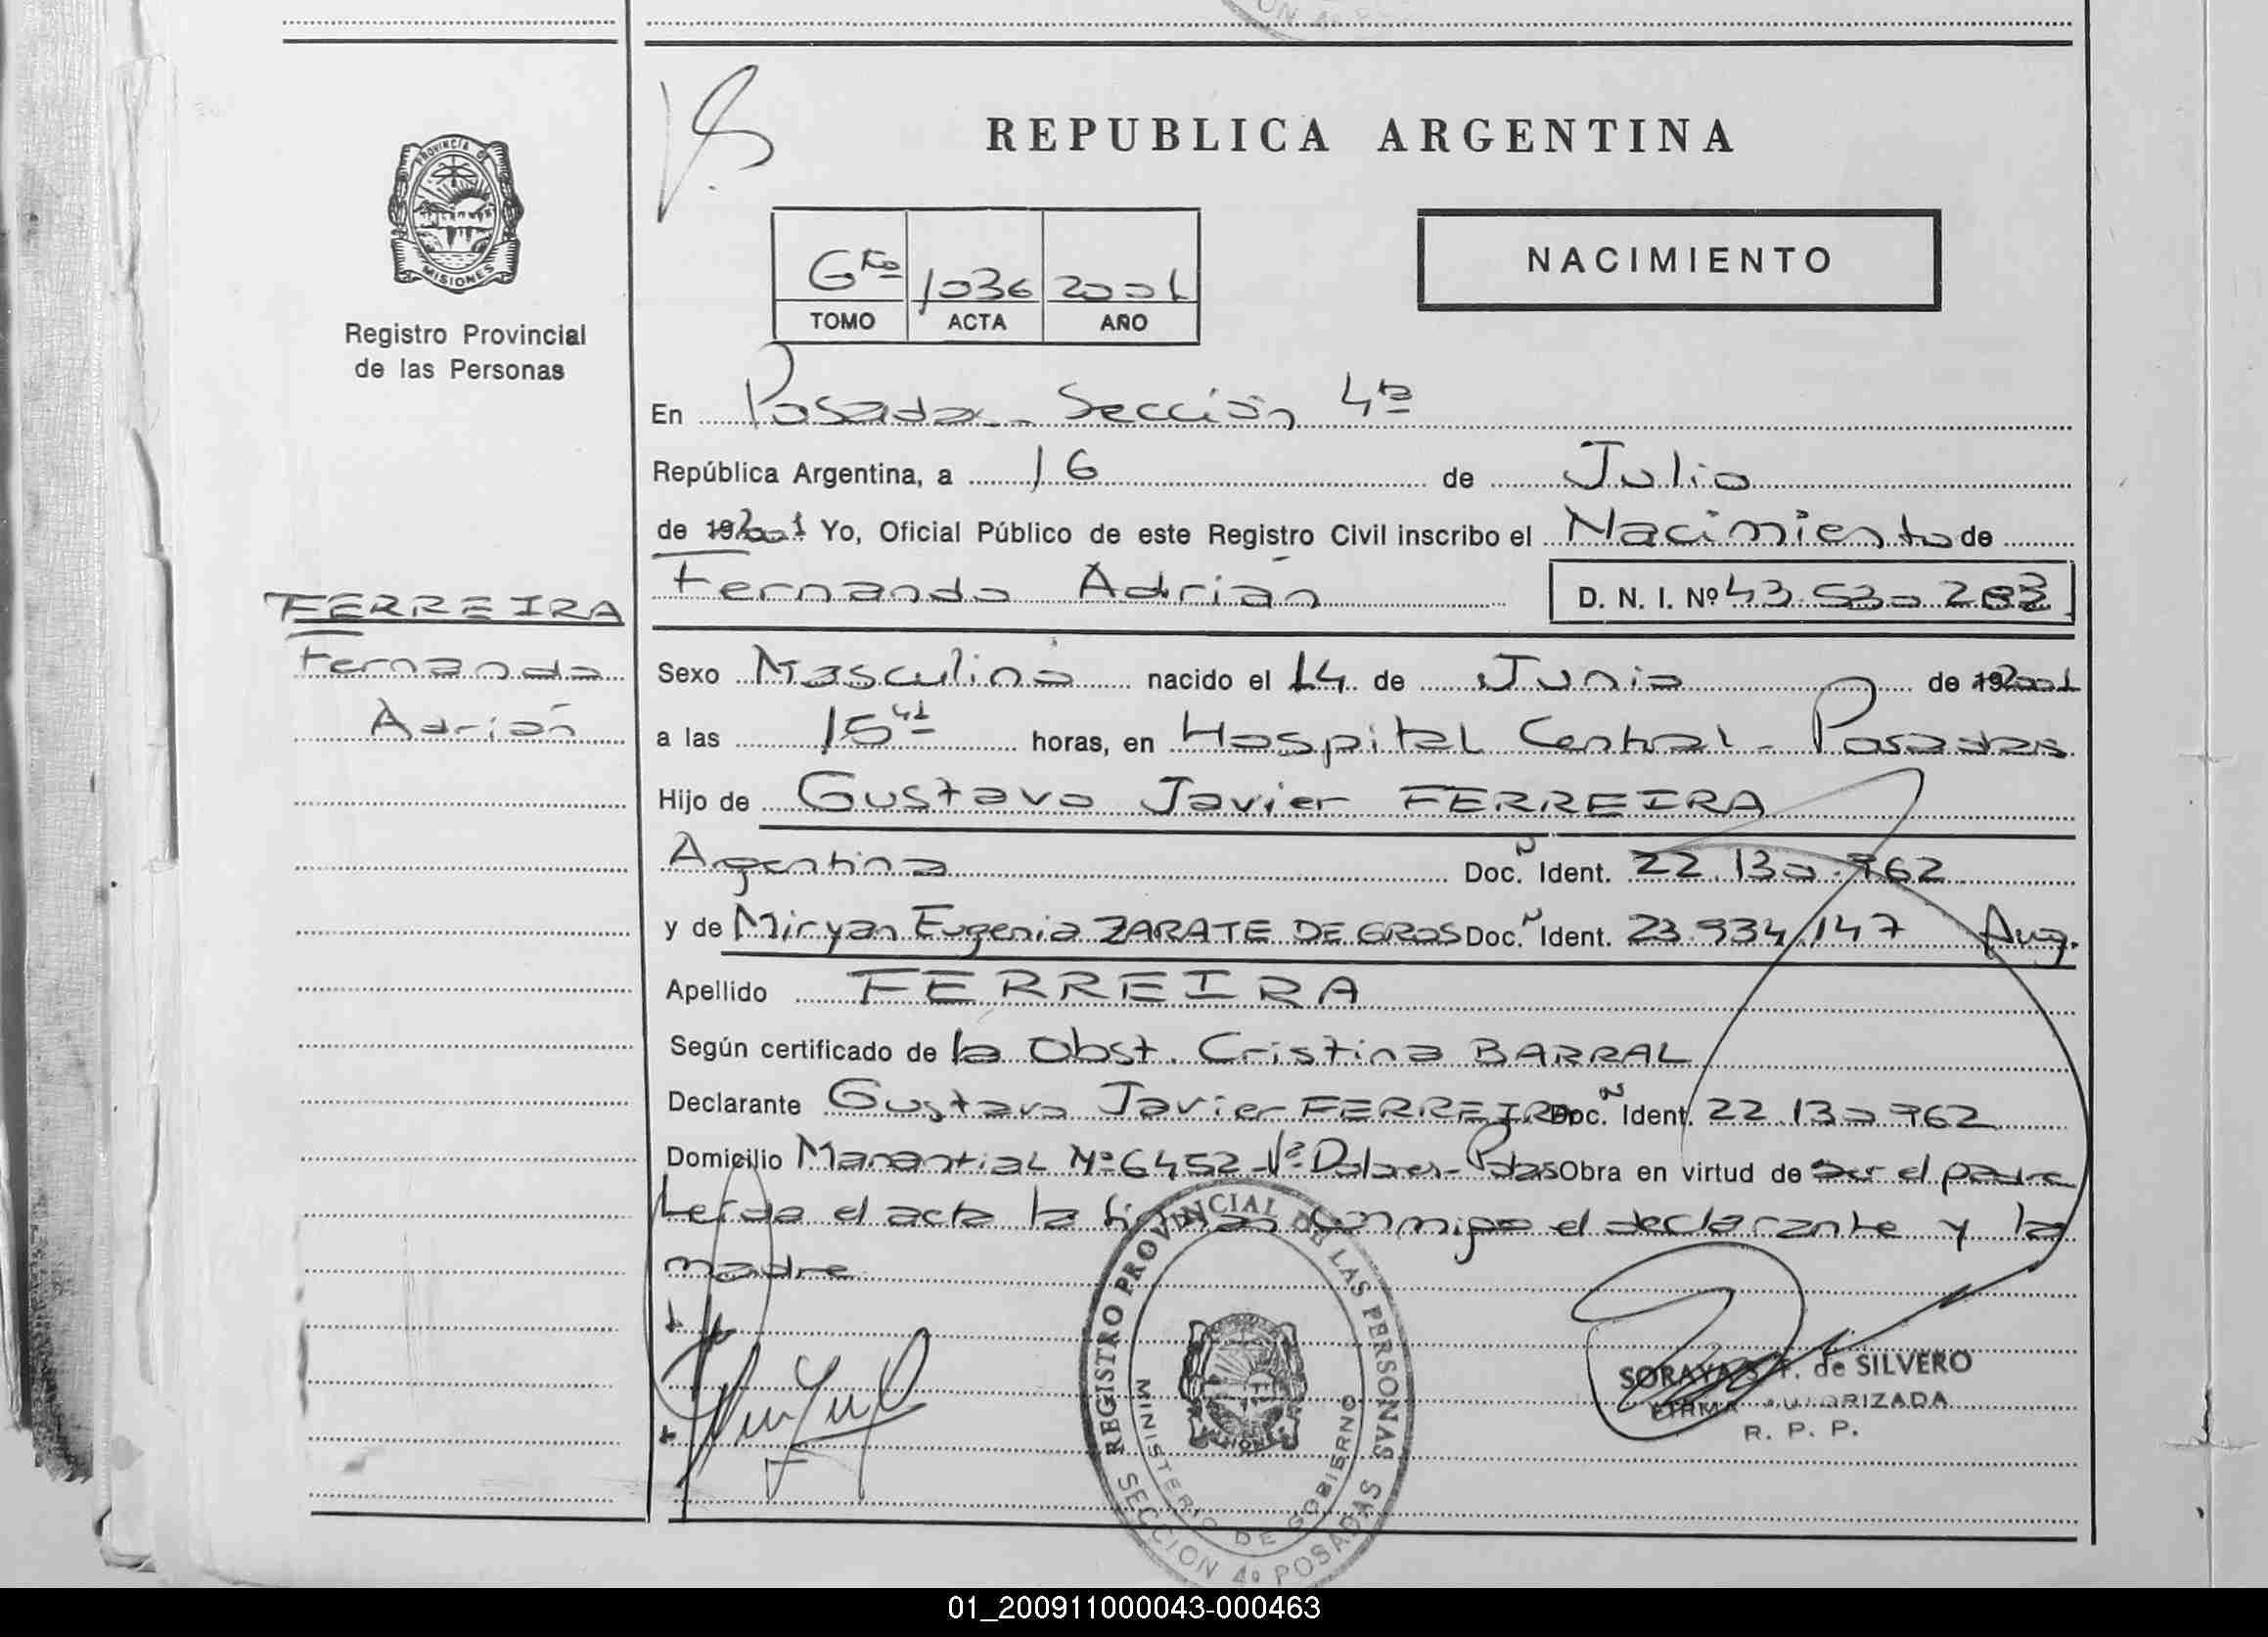 ON 4º P
REPUBLICA ARGENTINA
PROVINCIA DE
MISIONES
Registro Provincial
de las Personas
NACIMIENTO
6to 1036 2001
TOMO ACTA AÑO
En Posadas - Sección 4ta
República Argentina, a 16 de Julio
de 19 2001 Yo, Oficial Público de este Registro Civil inscribo el Nacimiento de
Fernando Adrián D. N. I. Nº 43.530.283
FERREIRA
Fernando
Adrián
Sexo Masculino nacido el 14 de Junio de 19 2001
a las 15 41 horas, en Hospital Central - Posadas
Hijo de Gustavo Javier FERREIRA
Argentina Doc. Ñ Ident. 22.130.962
y de Miryan Eugenia ZARATE DE GROS Doc. Ñ Ident. 23.934.147 Arg.
Apellido FERREIRA
Según certificado de la Obst. Cristina BARRAL
Declarante Gustavo Javier FERREIRA Doc. Ñ Ident. 22.130.962
Domicilio Manantial Nº 6452 - Vª Dolores - Pdas Obra en virtud de ser el padre
Leída el acta la firman conmigo el declarante y la
madre
REGISTRO PROVINCIAL DE LAS PERSONAS
MINISTERIO DE GOBIERNO
SECCION 4º POSADAS
SORAYA S. F. de SILVERO
FIRMA AUTORIZADA
R. P. P.
01_200911000043-000463